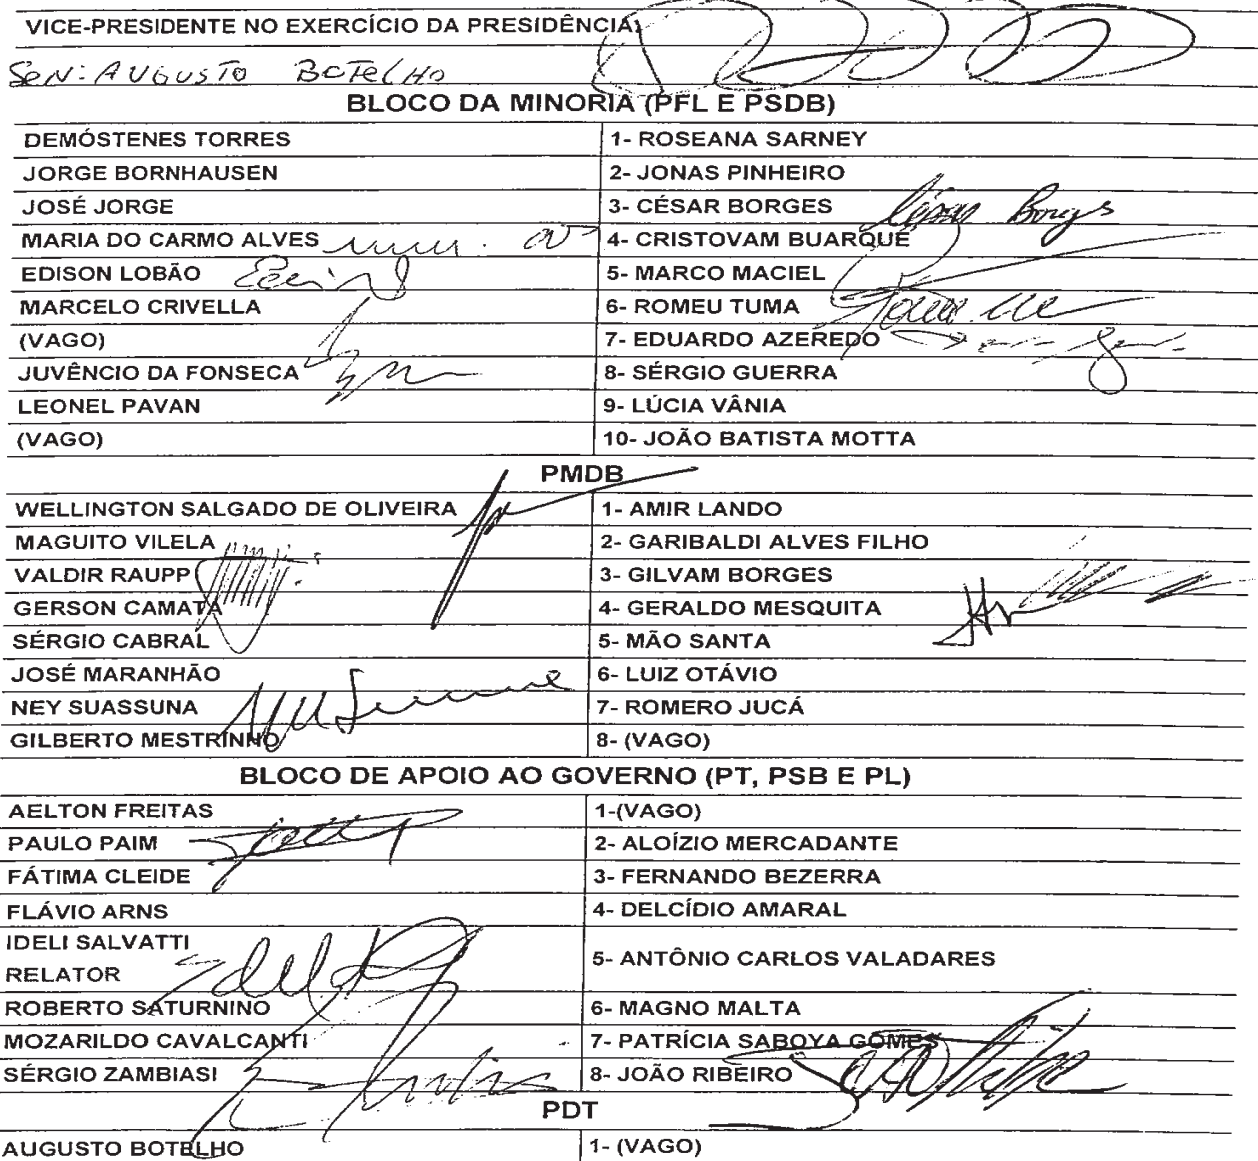 VICE-PRESIDENTE NO EXERCÍCIO DA PRESIDÊNCIA:
SEN: AUGUSTO BOTELHO
BLOCO DA MINORIA (PFL E PSDB)
DEMÓSTENES TORRES 1- ROSEANA SARNEY
JORGE BORNHAUSEN 2- JONAS PINHEIRO
JOSÉ JORGE 3- CÉSAR BORGES César Borges
MARIA DO CARMO ALVES 4- CRISTOVAM BUARQUE
EDISON LOBÃO 5- MARCO MACIEL
MARCELO CRIVELLA 6- ROMEU TUMA
(VAGO) 7- EDUARDO AZEREDO
JUVÊNCIO DA FONSECA 8- SÉRGIO GUERRA
LEONEL PAVAN 9- LÚCIA VÂNIA
(VAGO) 10- JOÃO BATISTA MOTTA
PMDB
WELLINGTON SALGADO DE OLIVEIRA 1- AMIR LANDO
MAGUITO VILELA 2- GARIBALDI ALVES FILHO
VALDIR RAUPP 3- GILVAM BORGES
GERSON CAMATA 4- GERALDO MESQUITA
SÉRGIO CABRAL 5- MÃO SANTA
JOSÉ MARANHÃO 6- LUIZ OTÁVIO
NEY SUASSUNA 7- ROMERO JUCÁ
GILBERTO MESTRINHO 8- (VAGO)
BLOCO DE APOIO AO GOVERNO (PT, PSB E PL)
AELTON FREITAS 1-(VAGO)
PAULO PAIM 2- ALOÍZIO MERCADANTE
FÁTIMA CLEIDE 3- FERNANDO BEZERRA
FLÁVIO ARNS 4- DELCÍDIO AMARAL
IDELI SALVATTI
RELATOR 5- ANTÔNIO CARLOS VALADARES
ROBERTO SATURNINO 6- MAGNO MALTA
MOZARILDO CAVALCANTI 7- PATRÍCIA SABOYA GOMES
SÉRGIO ZAMBIASI 8- JOÃO RIBEIRO
PDT
AUGUSTO BOTELHO 1- (VAGO)